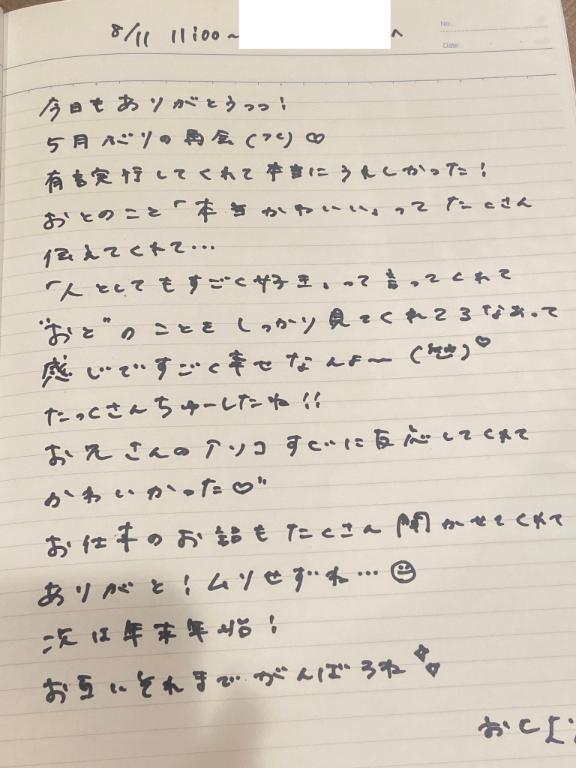 8/11 11:00~ へ
No.
Date
今日もありがとうっっ!
5月ぶりの再会(>Z<)♡
有言実行してくれて本当にうれしかった!
おとのこと「本当かわいい」ってたくさん
伝えてくれて…
「人としてもすごく好き」って言ってくれて
"おと"のことをしっかり見てくれてるなぁって
感じてすごく幸せなんよ〜 ♡
たっくさんちゅーしたね!!
お兄さんのアソコすぐに反応してくれて
かわいかった♡"
お仕事のお話もたくさん聞かせてくれて
ありがと!ムリせずね…☺
次は年末年始!
お互いそれまでがんばろうね✧✧
おと